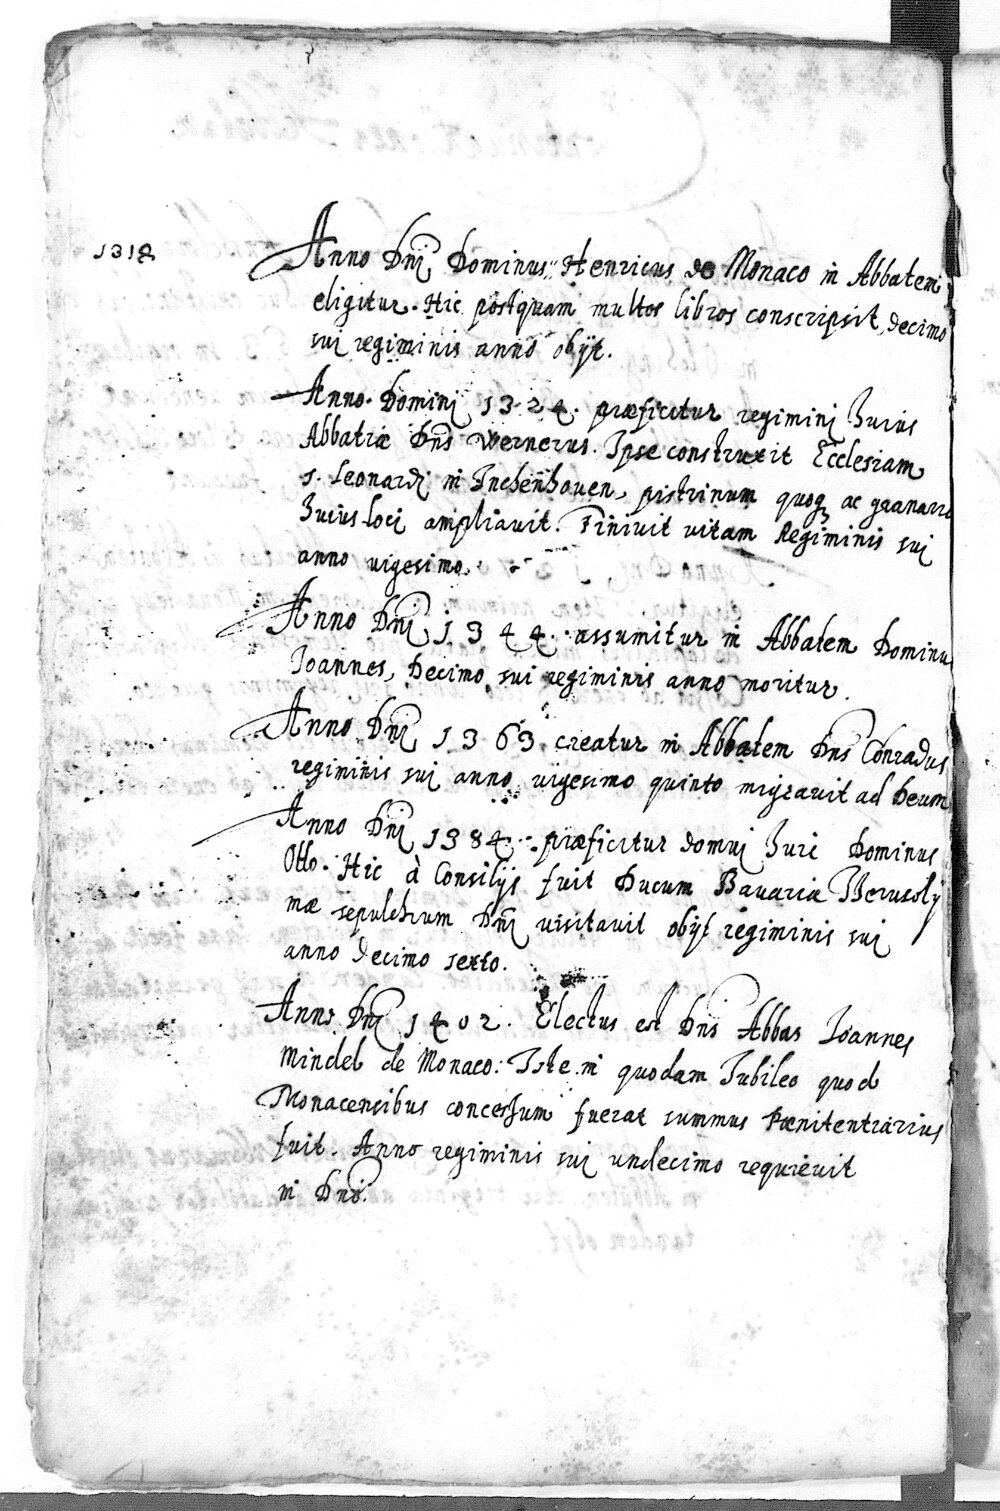 1318 Anno Dnj Dominus Henricus de Monaco in Abbatem
eligitur. Hic postquam multos libros conscripsit, decimo
suj regiminis anno obijt.
Anno Dominj 1324. præficitur regiminj huius
Abbatiæ Dns Wernerus. Ipse construxit Ecclesiam
S. Leonardj in Inchenhouen, pistrinum quoq ac granaria
huius loci ampliauit. Finiuit vitam Regiminis suj
anno vigesimo.
Anno Dnj 1344. assumitur in Abbatem Dominu
Joannes, Decimo suj regiminis anno moritur.
Anno Dnj 1363 creatur in Abbatem Dns Conradus
regiminis suj anno vigesimo quinto migrauit ad Deum
Anno Dnj 1384. præficitur domuj huic Dominus
Otto. Hic à Consilijs fuit Ducum Bauariæ Iherusoly
mæ sepulchrum Dnj visitauit obijt regiminis suj
anno decimo sexto.
Anno Dnj 1402. Electus est Dns Abbas Joannes
Mindel de Monaco. Iste in quodam Jubileo quod
Monacensibus concessum fuerat summus Pænitentiarius
fuit. Anno regiminis suj undecimo requieuit
in Dno.